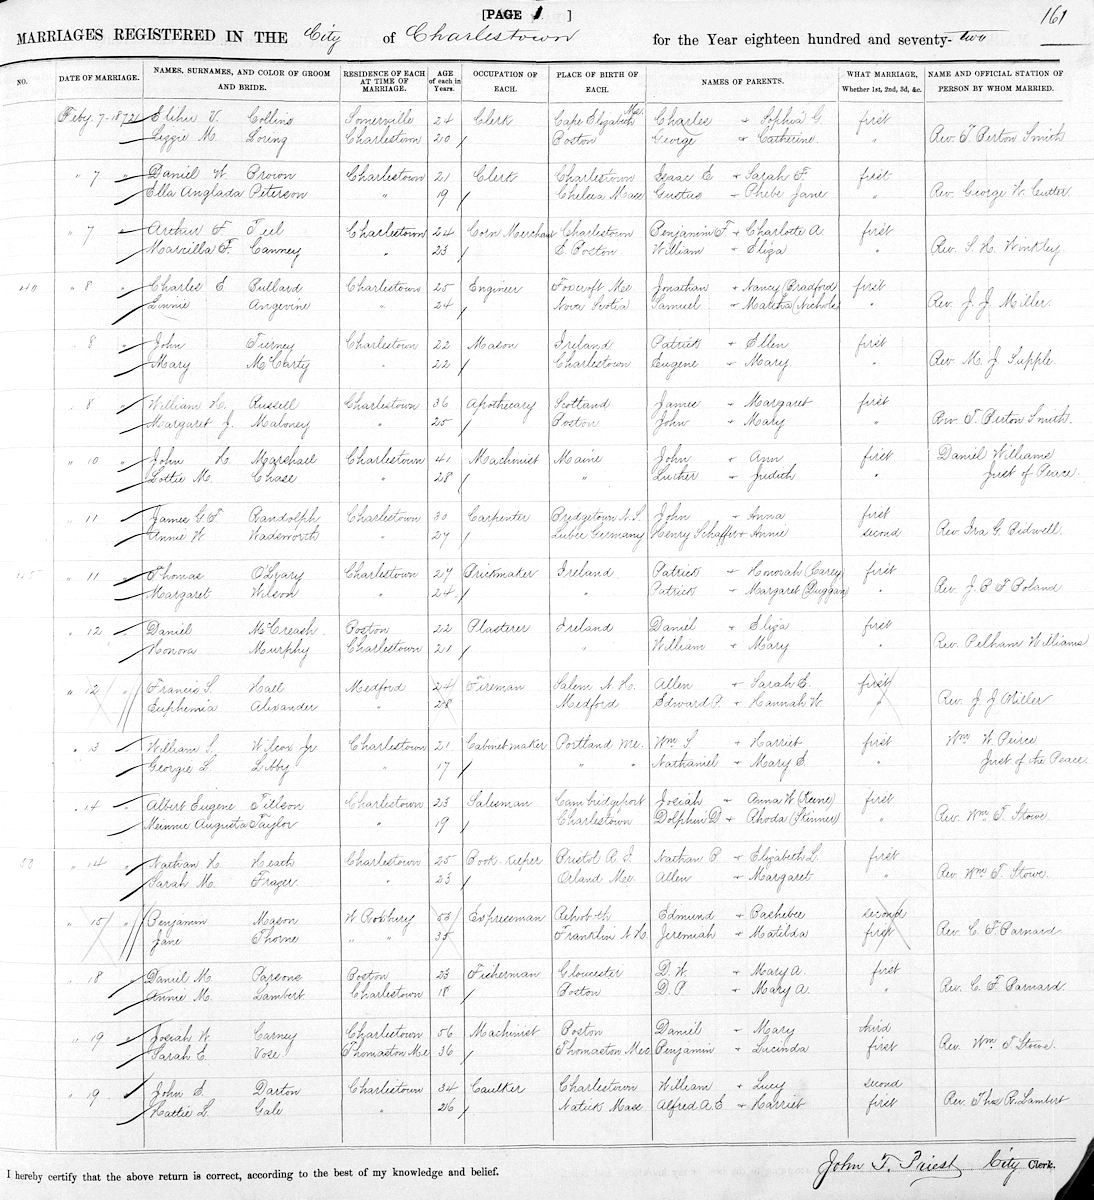 [PAGE 1 ]
161
MARRIAGES REGISTERED IN THE City of Charlestown for the Year eighteen hundred and seventy-two
NO. DATE OF MARRIAGE. NAMES, SURNAMES, AND COLOR OF GROOM AND BRIDE. RESIDENCE OF EACH AT TIME OF MARRIAGE. AGE of each in Years. OCCUPATION OF EACH. PLACE OF BIRTH OF EACH. NAMES OF PARENTS. WHAT MARRIAGE, Whether 1st, 2nd, 3d, &c. NAME AND OFFICIAL STATION OF PERSON BY WHOM MARRIED.
Feby. 7-1872 Elihu V. Collins Somerville 24 Clerk Cape Elizabeth Me. Charles + Sophia G first
Lizzie M. Loring Charlestown 20 Boston George + Catherine " Rev. T. Burton Smith
" 7 " Daniel W. Brown Charlestown 21 Clerk Charlestown Isaac E + Sarah F. first
Ella Anglada Peterson " 19 Chelsea Mass Gustus + Phebe Jane " Rev. George W. Cutter
" 7 " Archer F. Teel Charlestown 24 Corn Merchant Charlestown Benjamin F + Charlotte A first
Marcilla F. Canney " 23 E. Boston William + Eliza " Rev. S. H. Winkley
40 " 8 " Charles E Bullard Charlestown 25 Engineer Foxcroft Me Jonathan + Nancy (Bradford) first
Linnie Angevine " 24 Nova Scotia Samuel + Martha (Nichols) " Rev. J. J. Miller.
" 8 " John Tierney Charlestown 22 Mason Ireland Patrick + Ellen first
Mary McCarty " 22 Charlestown Eugene + Mary " Rev. M. J. Supple.
" 8 " William H. Russell Charlestown 36 Apothecary Scotland James + Margaret first
Margaret J. Maloney " 25 Boston John + Mary " Rev. T. Burton Smith.
" 10 " John H. Marshall Charlestown 41 Machinist Maine John + Ann first Daniel Williams
Lottie M. Chase " 28 " Luther + Judith " Just of Peace.
" 11 " James G. F. Randolph Charlestown 30 Carpenter Bridgetown N.S. John + Anna first
Annie W. Wadsworth " 27 Lubec Germany Henry Schaffer + Annie second Rev. Ira G. Bidwell.
45 " 11 " Thomas O'Leary Charlestown 27 Brickmaker Ireland Patrick + Honorah (Carey) first
Margaret Wilson " 24 " Patrick + Margaret (Duggan) " Rev. J. B. F. Boland.
" 12 " Daniel McCreash Boston 22 Plasterer Ireland Daniel + Eliza first
Honora Murphy Charlestown 21 " William + Mary " Rev. Pelham Williams
" 12 " Francis S. Hall Medford 24 Fireman Salem N. H. Allen + Sarah E. first
Euphemia Alexander " 28 Medford Edward P. + Hannah W. " Rev. J. J Miller
" 13 " William S. Wilcox Jr Charlestown 21 Cabinet maker Portland Me. Wm. S. + Harriet first Wm. W. Peirce
Georgie L. Libby " 17 " " Nathaniel + Mary E. " Just of the Peace.
" 14 Albert Eugene Tillson Charlestown 23 Salesman Cambridgeport Josiah + Anna W. (Keene) first
Minnie Augusta Taylor " 19 Charlestown Dolphin D + Rhoda (Skinner) " Rev. Wm. T. Stowe.
50 " 14 Nathan H. Heath Charlestown 25 Book-keeper Bristol R. I. Nathan B. + Elizabeth L. first
Sarah M. Frazer " 23 Orland Me. Allen + Margaret " Rev. Wm. T. Stowe.
" 15 " Benjamin Mason W Roxbury 53 Expressman Rehoboth Edmund + Bashebee second
Jane Thorne " " 35 Franklin N. H. Jeremiah + Matilda first Rev. C. F. Barnard
" 18 Daniel M. Parsons Boston 23 Fisherman Gloucester D. W. + Mary A. first
Annie M. Lambert Charlestown 18 Boston D. P. + Mary A. " Rev. C. F. Barnard
" 19 " Josiah W. Carney Charlestown 56 Machinist Boston Daniel + Mary third
Sarah E. Vose Thomaston Me 36 Thomaston Me Benjamin + Lucinda first Rev. Wm. T. Stowe.
" 19 " John E. Darton Charlestown 34 Caulker Charlestown William + Lucy second
Hattie L. Gale " 26 Natick Mass Alfred A. E + Harriet first Rev. Thos R. Lambert
I hereby certify that the above return is correct, according to the best of my knowledge and belief. John T. Priest City Clerk.